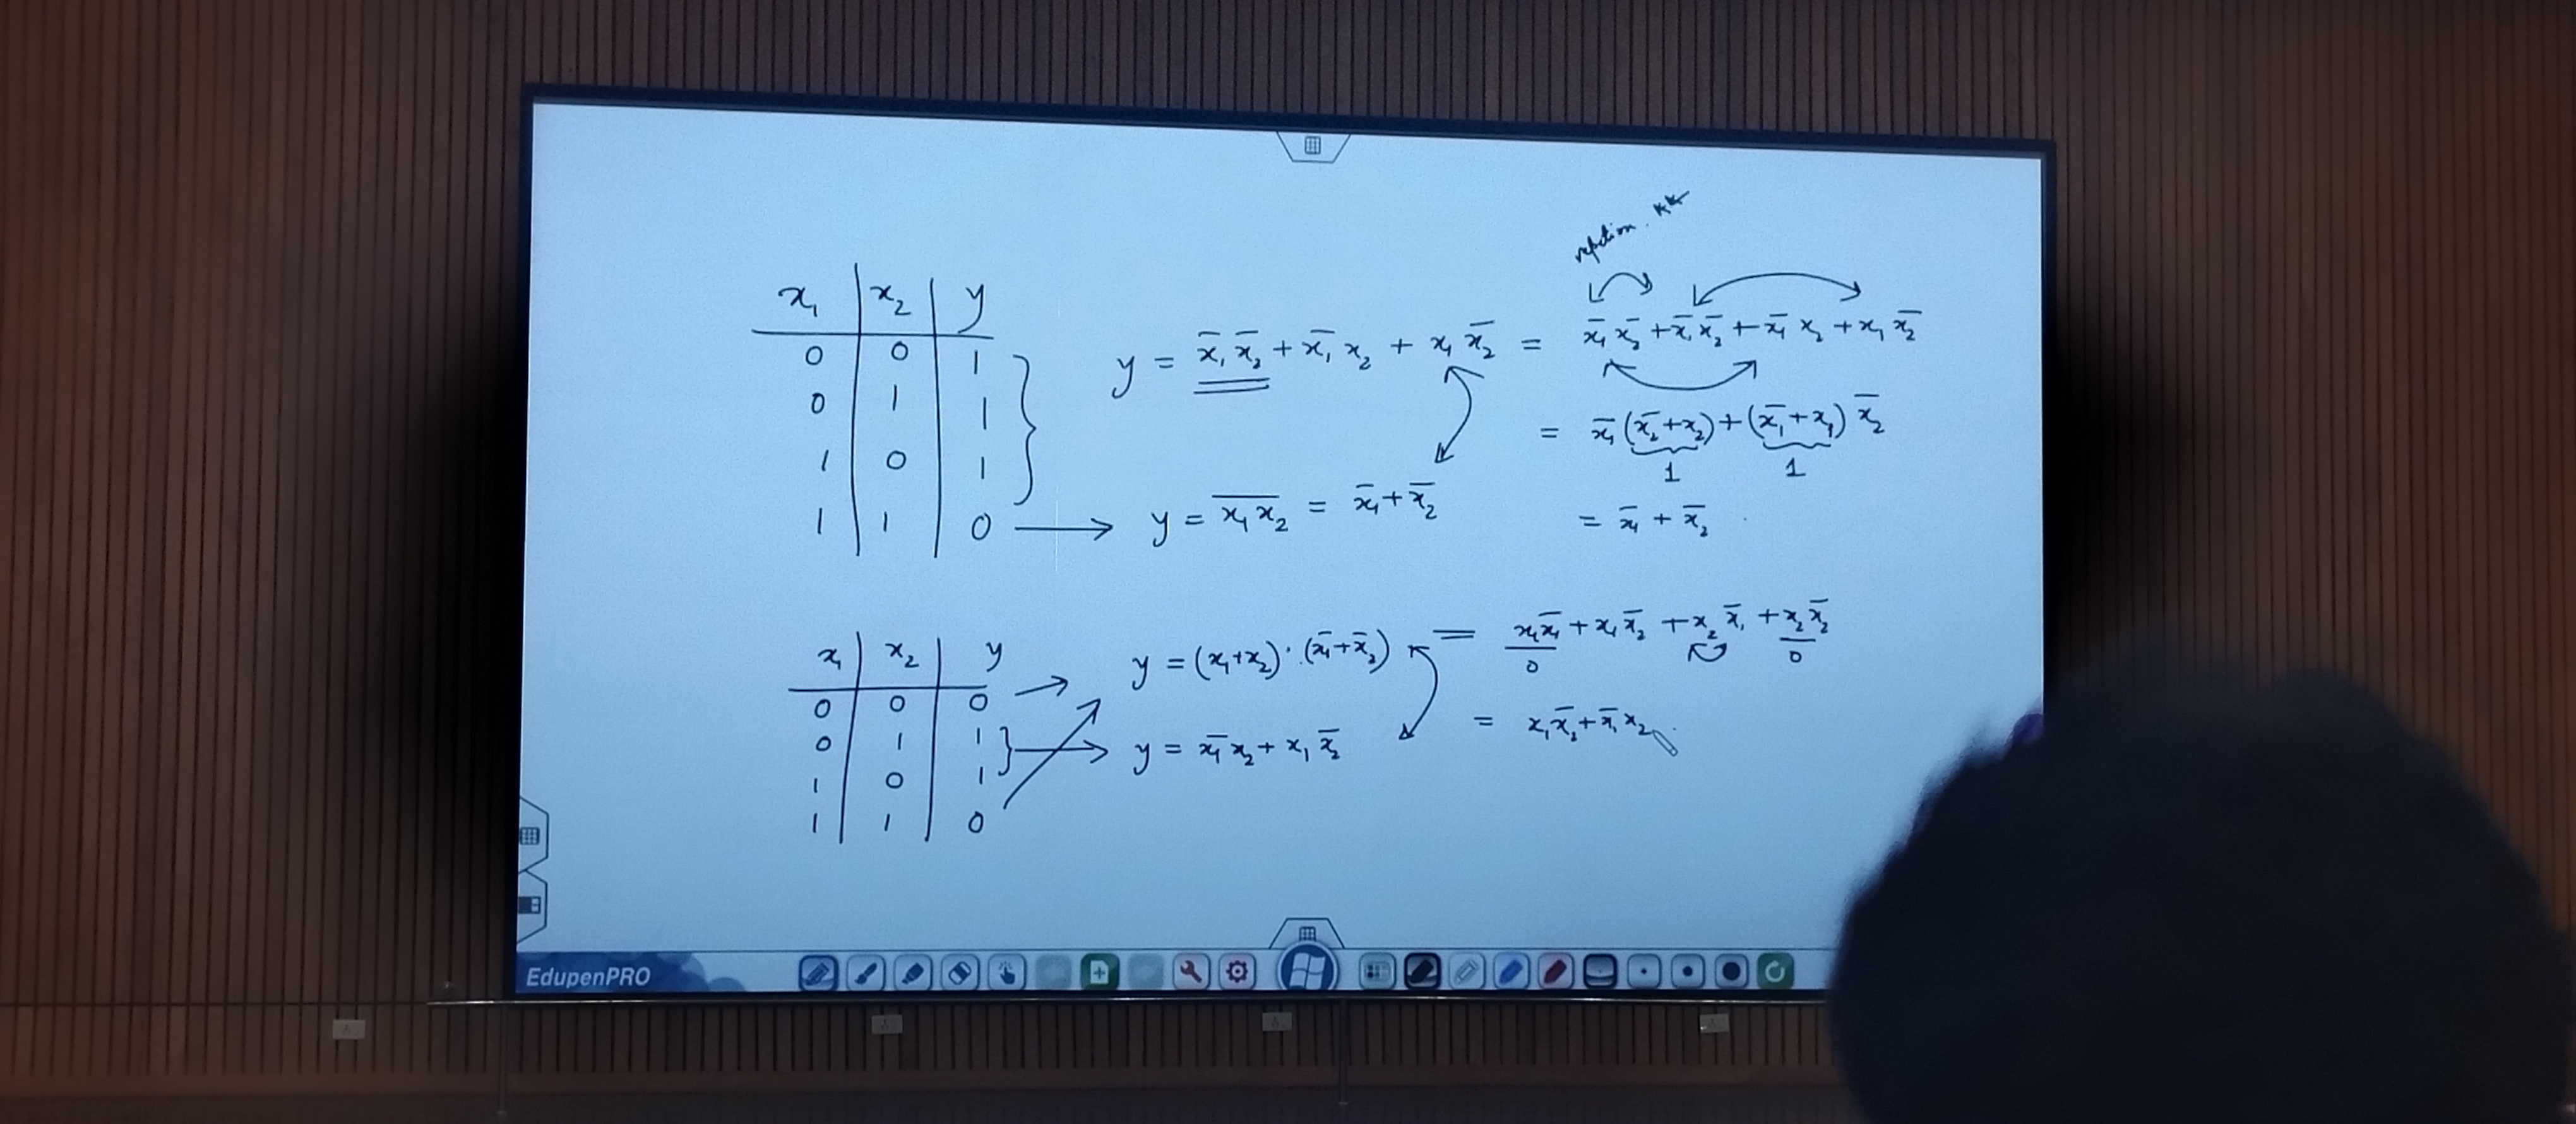 repetition. **
x₁ | x₂ | y
0 | 0 | 1
0 | 1 | 1
1 | 0 | 1
1 | 1 | 0
y = x̄₁ x̄₂ + x̄₁ x₂ + x₁ x̄₂ = x̄₁ x̄₂ + x̄₁ x̄₂ + x̄₁ x₂ + x₁ x̄₂
= x̄₁ (x̄₂ + x₂) + (x̄₁ + x₁) x̄₂
1 1
→ y = \overline{x₁ x₂} = x̄₁ + x̄₂
= x̄₁ + x̄₂
x₁ | x₂ | y
0 | 0 | 0
0 | 1 | 1
1 | 0 | 1
1 | 1 | 0
→ y = (x₁ + x₂) · (x̄₁ + x̄₂) = x₁ x̄₁ + x₁ x̄₂ + x₂ x̄₁ + x₂ x̄₂
0 0
→ y = x̄₁ x₂ + x₁ x̄₂
= x₁ x̄₂ + x̄₁ x₂
EdupenPRO